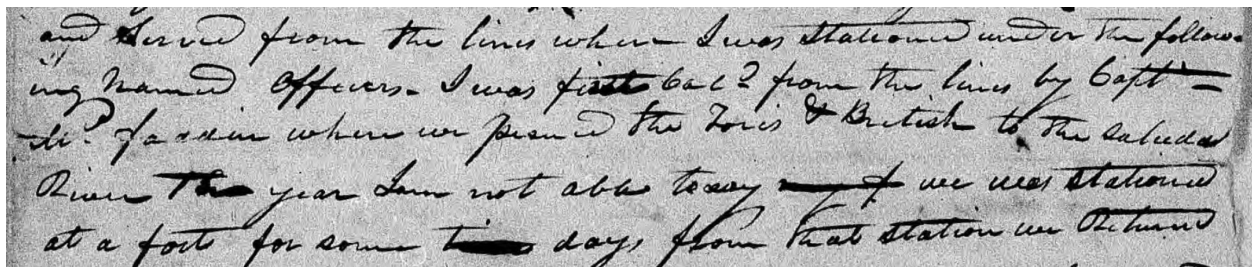 and Served from the lines where I was Stationed under the follow-
ing Named Officers. I was first Cal.d from the lines by Capt
Mc faddin where we persued the Toris & British to the Saluda
River The year I am not able to say we was Stationed
at a fort for some days from that Station we Returned